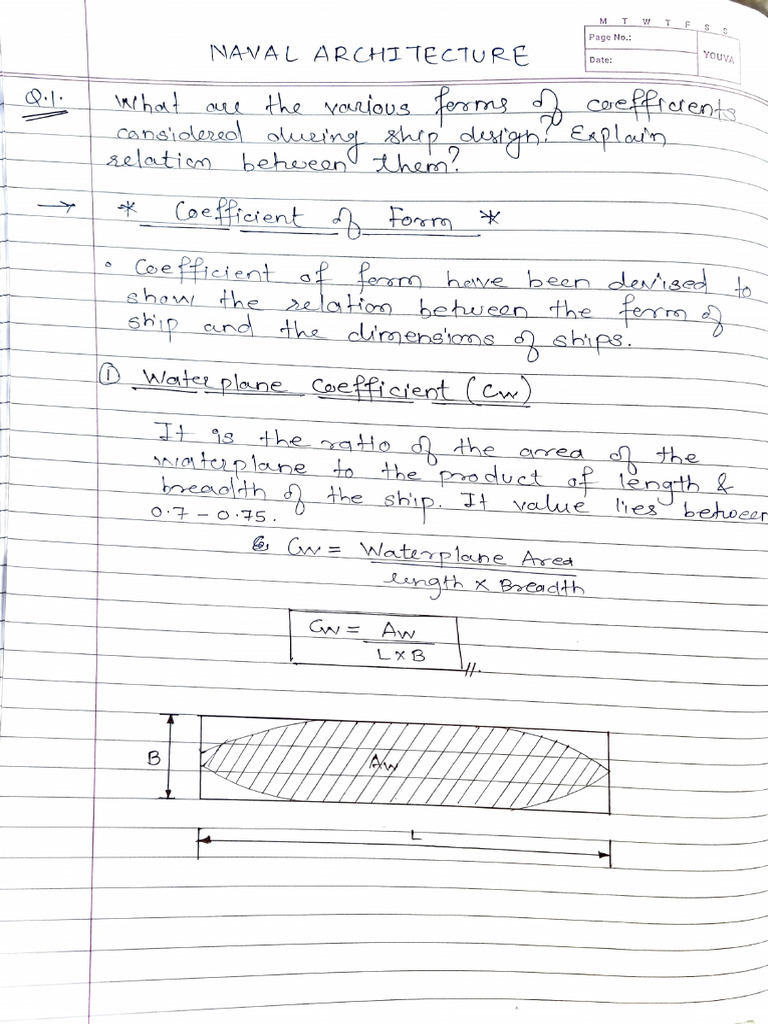 M T W T F S S
Page No.:
Date:
YOUVA
NAVAL ARCHITECTURE
Q.1. What are the various forms of coefficients
considered during ship design? Explain
relation between them?
→ * Coefficient of Form *
• Coefficient of form have been devised to
show the relation between the form of
ship and the dimensions of ships.
① Waterplane Coefficient (Cw)
It is the ratio of the area of the
waterplane to the product of length &
breadth of the ship. It value lies between
0.7 - 0.75.
Cw = Waterplane Area
length × Breadth
Cw = Aw
L×B
B
Aw
L